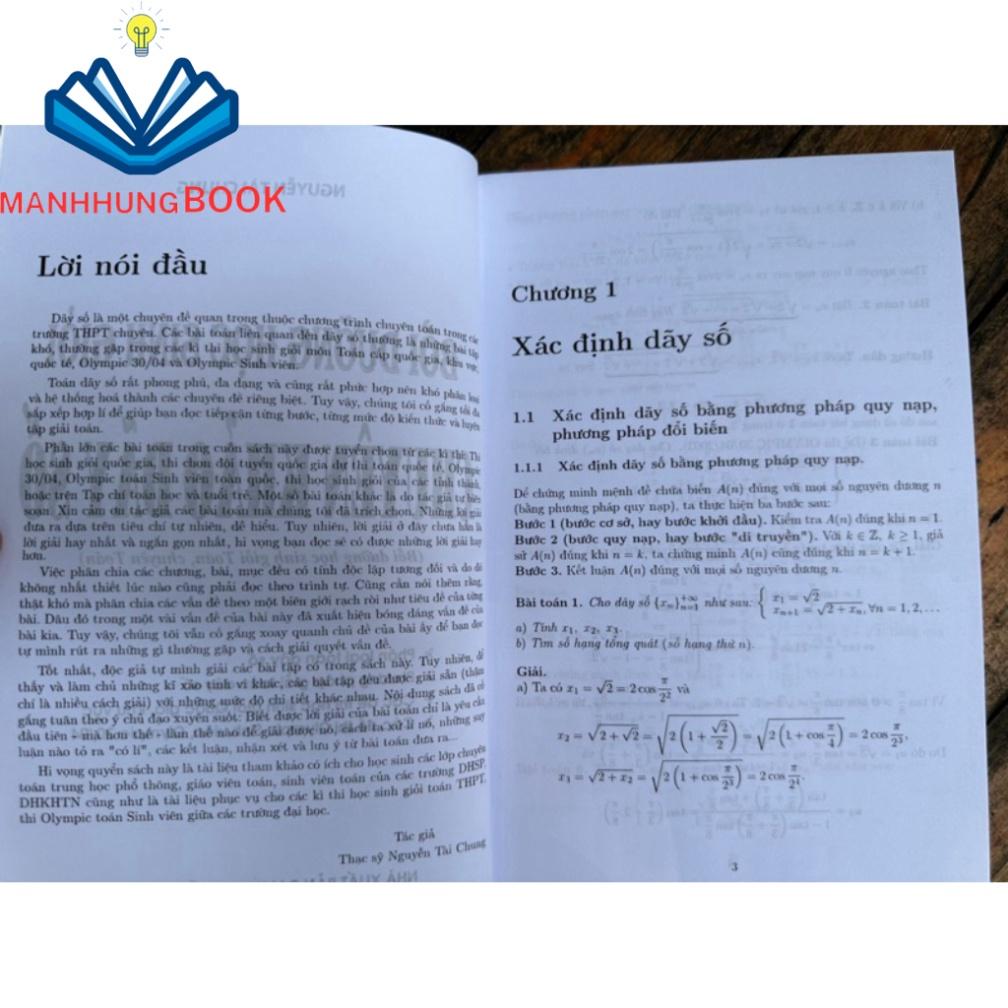 MANHHUNGBOOK
Lời nói đầu
Dãy số là một chuyên đề quan trọng thuộc chương trình chuyên toán trong các
trường THPT chuyên. Các bài toán liên quan đến dãy số thường là những bài tập
khó, thường gặp trong các kì thi học sinh giỏi môn Toán cấp quốc gia, khu vực,
quốc tế, Olympic 30/04 và Olympic Sinh viên.
Toán dãy số rất phong phú, đa dạng và cũng rất phức hợp nên khó phân loại
và hệ thống hoá thành các chuyên đề riêng biệt. Tuy vậy, chúng tôi cố gắng tối đa
sắp xếp hợp lí để giúp bạn đọc tiếp cận từng bước, từng mức độ kiến thức và luyện
tập giải toán.
Phần lớn các bài toán trong cuốn sách này được tuyển chọn từ các kì thi: Thi
học sinh giỏi quốc gia, thi chọn đội tuyển quốc gia dự thi toán quốc tế, Olympic
30/04, Olympic toán Sinh viên toàn quốc, thi học sinh giỏi của các tỉnh thành,
hoặc trên Tạp chí toán học và tuổi trẻ. Một số bài toán khác là do tác giả tự biên
soạn. Xin cảm ơn tác giả các bài toán mà chúng tôi đã trích chọn. Những lời giải
đưa ra dựa trên tiêu chí tự nhiên, dễ hiểu. Tuy nhiên, lời giải ở đây chưa hẳn là
lời giải hay nhất và ngắn gọn nhất, hi vọng bạn đọc sẽ có được những lời giải hay
hơn.
Việc phân chia các chương, bài, mục đều có tính độc lập tương đối và do đó
không nhất thiết lúc nào cũng phải đọc theo trình tự. Cũng cần nói thêm rằng,
thật khó mà phân chia các vấn đề theo một biên giới rạch ròi như tiêu đề của từng
bài. Dâu đó trong một vài vấn đề của bài này đã xuất hiện bóng dáng vấn đề của
bài kia. Tuy vậy, chúng tôi vẫn cố gắng xoay quanh chủ đề của bài ấy để bạn đọc
tự mình rút ra những gì thường gặp và cách giải quyết vấn đề.
Tốt nhất, độc giả tự mình giải các bài tập có trong sách này. Tuy nhiên, để
thấy và làm chủ những kĩ xảo tinh vi khác, các bài tập đều được giải sẵn (thậm
chí là nhiều cách giải) với những mức độ chi tiết khác nhau. Nội dung sách đã cố
gắng tuân theo ý chủ đạo xuyên suốt: Biết được lời giải của bài toán chỉ là yêu cầu
đầu tiên - mà hơn thế - làm thế nào để giải được nó, cách ta xử lí nó, những suy
luận nào tỏ ra "có lí", các kết luận, nhận xét và lưu ý từ bài toán đưa ra...
Hi vọng quyển sách này là tài liệu tham khảo có ích cho học sinh các lớp chuyên
toán trung học phổ thông, giáo viên toán, sinh viên toán của các trường DHSP,
DHKHTN cũng như là tài liệu phục vụ cho các kì thi học sinh giỏi toán THPT,
thi Olympic toán Sinh viên giữa các trường đại học.
Tác giả
Thạc sỹ Nguyễn Tài Chung
Chương 1
Xác định dãy số
1.1 Xác định dãy số bằng phương pháp quy nạp,
phương pháp đổi biến
1.1.1 Xác định dãy số bằng phương pháp quy nạp.
Để chứng minh mệnh đề chứa biến A(n) đúng với mọi số nguyên dương n
(bằng phương pháp quy nạp), ta thực hiện ba bước sau:
Bước 1 (bước cơ sở, hay bước khởi đầu). Kiểm tra A(n) đúng khi n = 1.
Bước 2 (bước quy nạp, hay bước "di truyền"). Với k ∈ Z, k ≥ 1, giả
sử A(n) đúng khi n = k, ta chứng minh A(n) cũng đúng khi n = k + 1.
Bước 3. Kết luận A(n) đúng với mọi số nguyên dương n.
Bài toán 1. Cho dãy số {xₙ}ₙ₌₁^{+∞} như sau: { x₁ = √2
xₙ₊₁ = √(2 + xₙ), ∀n = 1, 2, ...
a) Tính x₁, x₂, x₃.
b) Tìm số hạng tổng quát (số hạng thứ n).
Giải.
a) Ta có x₁ = √2 = 2cos π/2² và
x₂ = √(2 + √2) = √(2(1 + √2/2)) = √(2(1 + cos π/4)) = 2 cos π/2³,
x₃ = √(2 + x₂) = √(2(1 + cos π/2³)) = 2 cos π/2⁴.
3